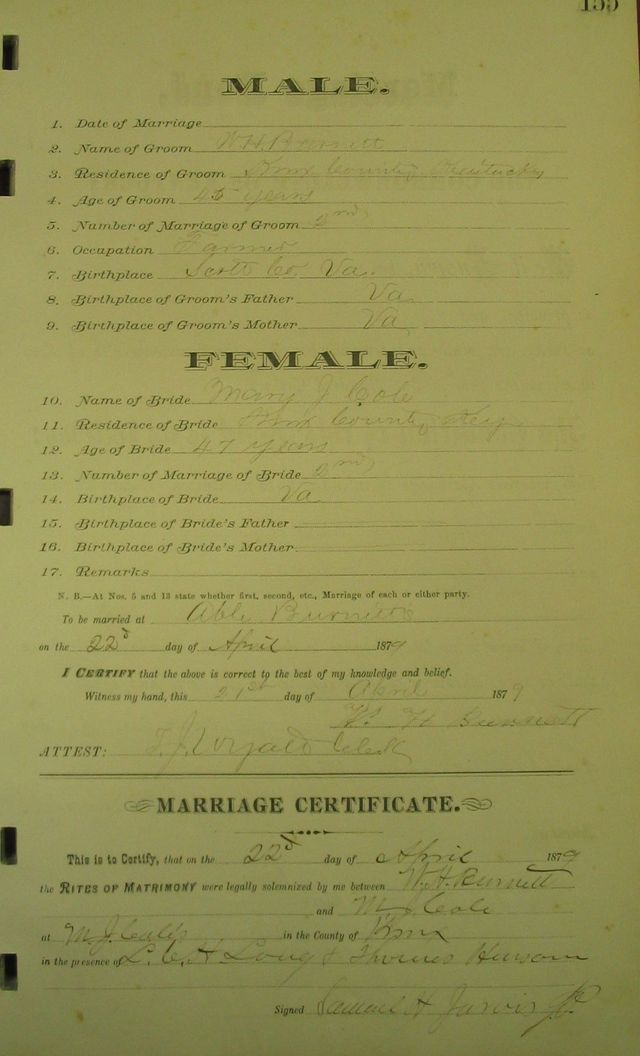 155
MALE.
1. Date of Marriage
2. Name of Groom W H Burnett
3. Residence of Groom Knox County, Kentucky
4. Age of Groom 45 years
5. Number of Marriage of Groom 2nd
6. Occupation Farmer
7. Birthplace Scott Co. Va.
8. Birthplace of Groom's Father Va
9. Birthplace of Groom's Mother Va
FEMALE.
10. Name of Bride Mary J Cole
11. Residence of Bride Knox County
12. Age of Bride 47 years
13. Number of Marriage of Bride 2nd
14. Birthplace of Bride Va
15. Birthplace of Bride's Father
16. Birthplace of Bride's Mother
17. Remarks
N. B.—At Nos. 5 and 13 state whether first, second, etc., Marriage of each or either party.
To be married at
on the 22d day of April 1879
I CERTIFY that the above is correct to the best of my knowledge and belief.
Witness my hand, this 21st day of April 1879
W. H Burnett
ATTEST: Clerk
MARRIAGE CERTIFICATE.
This is to Certify, that on the 22d day of April 1879
the RITES OF MATRIMONY were legally solemnized by me between W. H. Burnett
and M J Cole
at M. J. in the County of Knox
in the presence of Long & Thomas
Signed Samuel H Jarvis